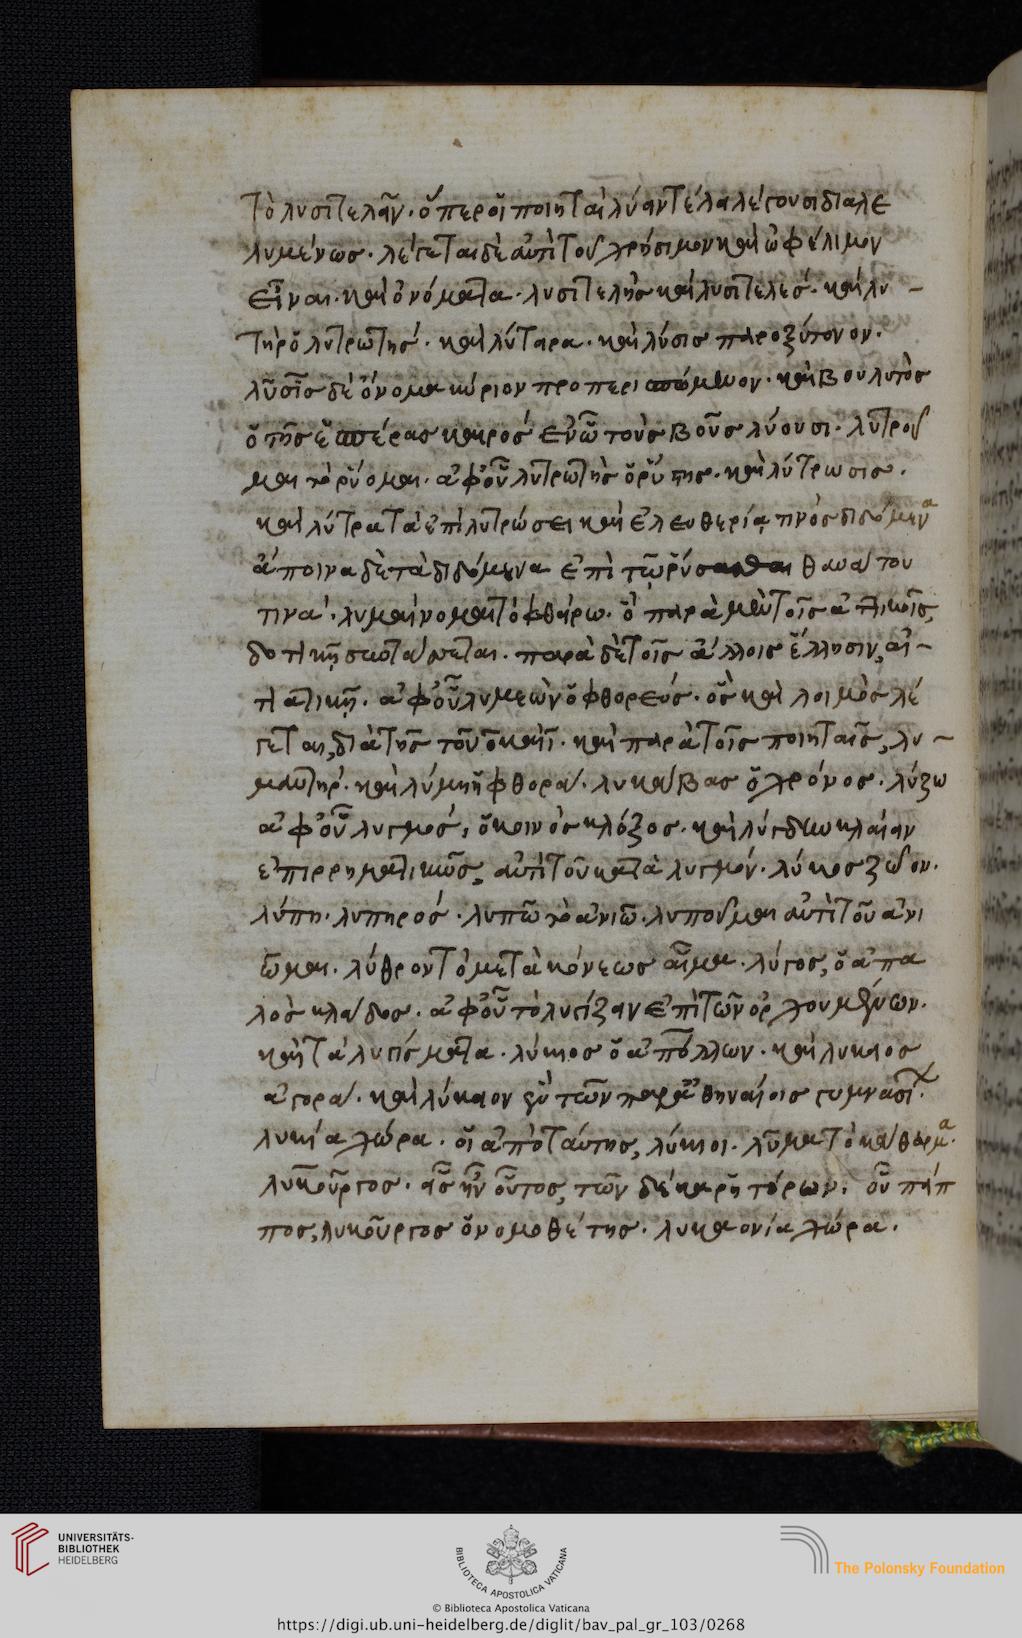 τὸ λυσιτελεῖν· ὅπερ οἱ ποιηταὶ λύειν τέλη λέγουσι διαλε
λυμένως· λέγεται δὲ ἀντὶ τοῦ χρήσιμον καὶ ὠφέλιμον
εἶναι· καὶ ὀνόματα· λυσιτελὴς καὶ λυσιτελές· καὶ λυ
τὴρ ὁ λυτρωτής· καὶ λύτειρα· καὶ λύσις παροξύτονον·
λῦσις δὲ ὄνομα κύριον προπερισπώμενον· καὶ βουλυτὸς
ὁ τῆς ἑσπέρας καιρός ἐν ᾧ τοὺς βοῦς λύουσι· λυτροῦ
μαι τὸ ῥύομαι· ἀφ' οὗ λυτρωτὴς ὁ ῥύστης· καὶ λύτρωσις·
καὶ λύτρα τὰ ἐπὶ λυτρώσει καὶ ἐλευθερίᾳ τινὸς διδόμενα
ἄποινα δὲ τὰ διδόμενα ἐπὶ τῷ ῥύσασθαι θανάτου
τινά· λυμαίνομαι τὸ φθείρω· ὃ παρὰ μὲν τοῖς ἀττικοῖς,
δοτικῇ συντάσσεται· παρὰ δὲ τοῖς ἄλλοις ἕλλησιν, αἰ
τιατικῇ· ἀφ' οὗ λυμεὼν ὁ φθορεύς· ὃς καὶ λοιμὸς λέ
γεται, διὰ τῆς τοῦ ο καὶ ι· καὶ παρὰ τοῖς ποιηταῖς, λυ
μαντήρ· καὶ λύμη ἡ φθορά· λυκάβας ὁ χρόνος· λύζω
ἀφ' οὗ λυγμός, ὁ κοινὸς κλόζος· καὶ λύγδην κλαίειν
ἐπιρρηματικῶς, ἀντὶ τοῦ κατὰ λυγμόν· λύκος ζῶον·
λύπη· λυπηρός· λυπῶ τὸ ἀνιῶ· λυποῦμαι ἀντὶ τοῦ ἀνι
ῶμαι· λύθρον τὸ μετὰ κόνεως αἷμα· λύγος, ὁ ἁπα
λὸς κλάδος· ἀφ' οὗ τὸ λυγίζειν ἐπὶ τῶν ὀρχουμένων·
καὶ τὰ λυγίσματα· λύκιος ὁ ἀπόλλων· καὶ λυκαιος
ἀγορά· καὶ λύκειον ἓν τῶν παρ' ἀθηναίοις γυμνασί·
λυκία χώρα· οἱ ἀπὸ ταύτης, λύκιοι· λῦμα τὸ κάθαρμα·
λυκοῦργος· εἷς ἦν οὗτος, τῶν δέκα ῥητόρων· οὗ πάπ
πος, λυκοῦργος ὁ νομοθέτης· λυκαονία χώρα·
UNIVERSITÄTS-
BIBLIOTHEK
HEIDELBERG
BIBLIOTECA APOSTOLICA VATICANA
The Polonsky Foundation
© Biblioteca Apostolica Vaticana
https://digi.ub.uni-heidelberg.de/diglit/bav_pal_gr_103/0268